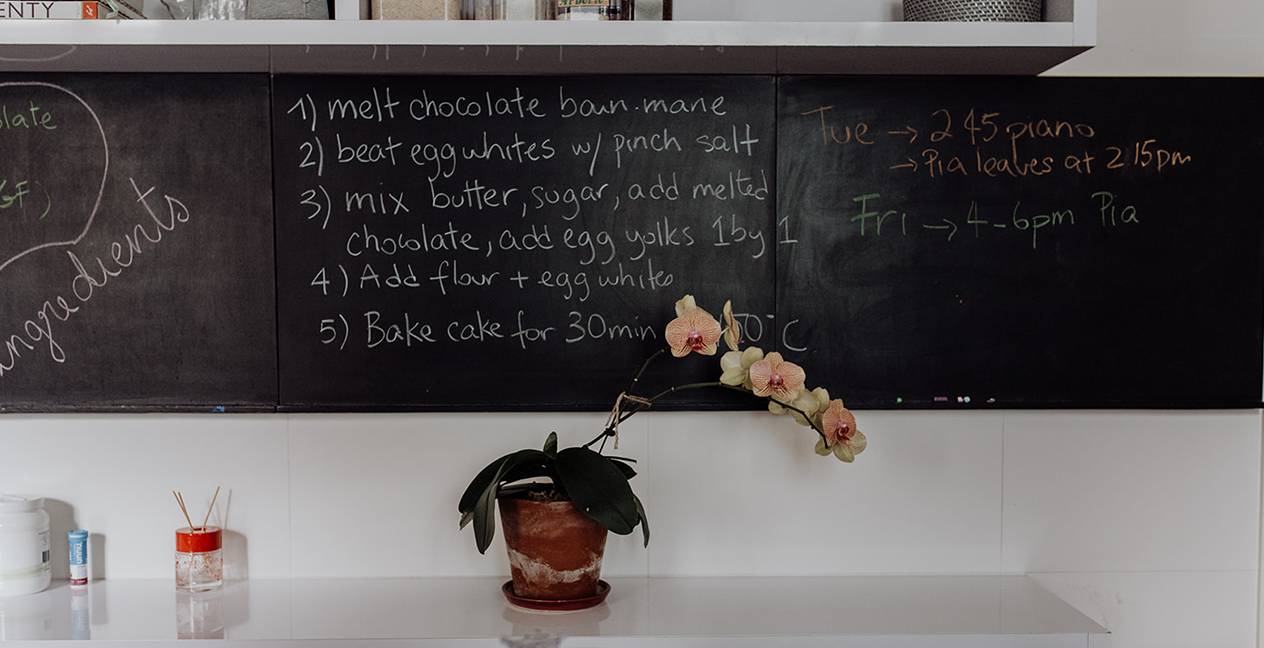 ENTY
late
GF)
ingredients
1) melt chocolate bain.marie
2) beat egg whites w/ pinch salt
3) mix butter, sugar, add melted
chocolate, add egg yolks 1 by 1
4) Add flour + egg whites
5) Bake cake for 30min 50°C
Tue → 2 45 piano
→ Pia leaves at 2 15pm
Fri → 4-6pm Pia
nuun